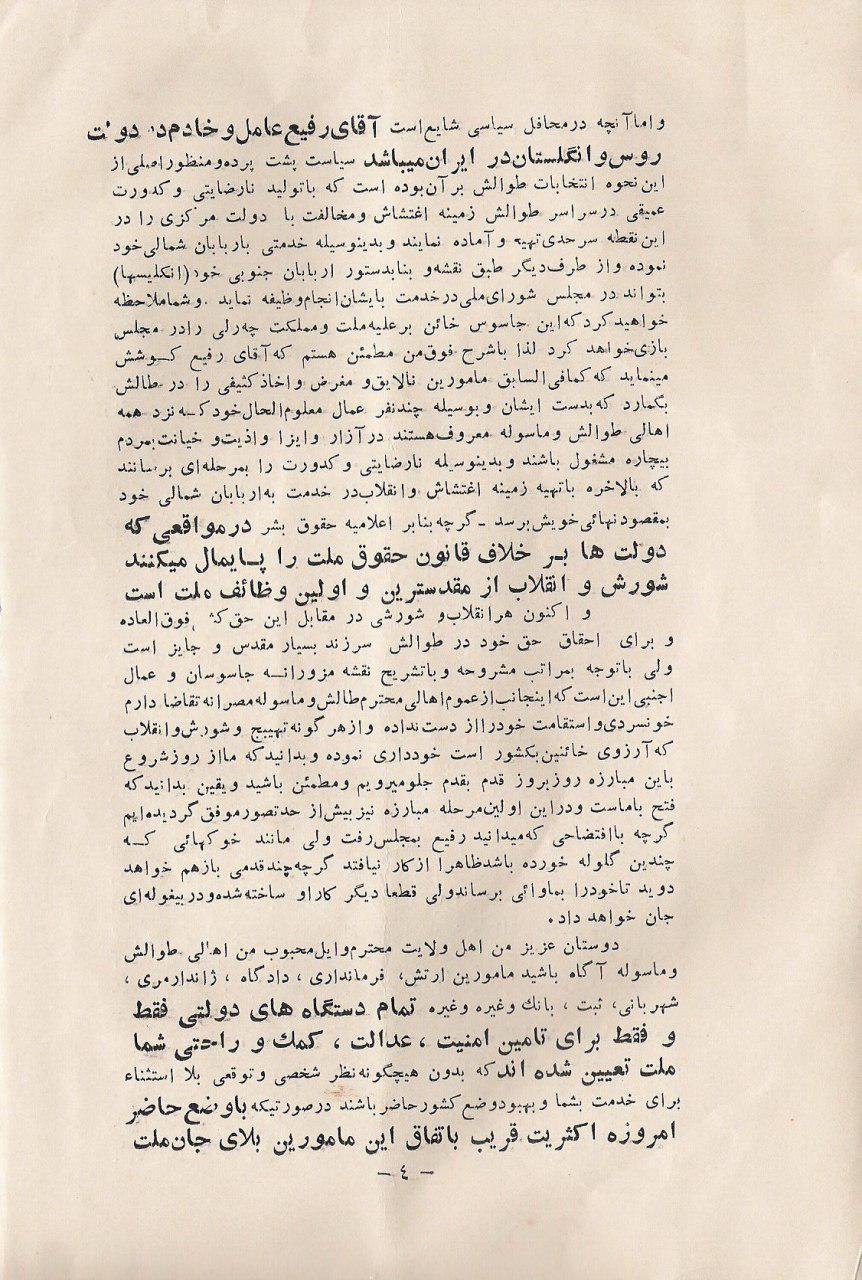 و اما آنچه در محافل سیاسی شایع است آقای رفیع عامل و خادم دو دولت
روس و انگلستان در ایران میباشد سیاست پشت پرده و منظور اصلی از
این نحوه انتخابات طوالش بر آن بوده است که با تولید نارضایتی و کدورت
عمیقی در سراسر طوالش زمینه اغتشاش و مخالفت با دولت مرکزی را در
این نقطه سرحدی تهیه و آماده نمایند و بدینوسیله خدمتی باربابان شمالی خود
نموده و از طرف دیگر طبق نقشه و بنا بدستور اربابان جنوبی خود (انگلیسها)
بتواند در مجلس شورای ملی در خدمت بایشان انجام وظیفه نماید و شما ملاحظه
خواهید کرد که این جاسوس خائن بر علیه ملت و مملکت چه رلی را در مجلس
بازی خواهد کرد لذا با شرح فوق من مطمئن هستم که آقای رفیع کوشش
مینماید که کمافی السابق مامورین نالایق و مغرض و اخاذ کثیفی را در طالش
بگمارد که بدست ایشان و بوسیله چند نفر عمال معلوم الحال خود که نزد همه
اهالی طوالش و ماسوله معروف هستند در آزار و ایزا و اذیت و خیانت بمردم
بیچاره مشغول باشند و بدینوسیله نارضایتی و کدورت را بمرحله ای برسانند
که بالاخره با تهیه زمینه اغتشاش و انقلاب در خدمت به اربابان شمالی خود
بمقصود نهائی خویش برسد - گرچه بنابر اعلامیه حقوق بشر در مواقعی که
دولت ها بر خلاف قانون حقوق ملت را پایمال میکنند
شورش و انقلاب از مقدسترین و اولین وظائف ملت است
و اکنون هر انقلاب و شورشی در مقابل این حق کشی فوق العاده
و برای احقاق حق خود در طوالش سرزند بسیار مقدس و جایز است
ولی با توجه بمراتب مشروحه و با تشریح نقشه مزورانه جاسوسان و عمال
اجنبی این است که اینجانب از عموم اهالی محترم طالش و ماسوله مصرانه تقاضا دارم
خونسردی و استقامت خود را از دست نداده و از هر گونه تهییج و شورش و انقلاب
که آرزوی خائنین بکشور است خودداری نموده و بدانید که ما از روز شروع
باین مبارزه روز بروز قدم بقدم جلو میرویم و مطمئن باشید و یقین بدانید که
فتح با ماست و در این اولین مرحله مبارزه نیز بیش از حد تصور موفق گردیده ایم
گرچه با افتضاحی که میدانید رفیع بمجلس رفت ولی مانند خوکهائی که
چندین گلوله خورده باشد ظاهرا از کار نیافتد گرچه چند قدمی بازهم خواهد
دوید تا خود را بماوائی برساند ولی قطعا دیگر کار او ساخته شده و در بیغوله ای
جان خواهد داد.
دوستان عزیز من اهل ولایت محترم و ایل محبوب من اهالی طوالش
و ماسوله آگاه باشید مامورین ارتش، فرمانداری ، دادگاه ، ژاندارمری ،
شهربانی، ثبت ، بانك وغیره وغیره تمام دستگاه های دولتی فقط
و فقط برای تامین امنیت ، عدالت ، کمك و راحتی شما
ملت تعیین شده اند که بدون هیچگونه نظر شخصی و توقعی بلا استثناء
برای خدمت بشما و بهبود وضع کشور حاضر باشند در صورتیکه با وضع حاضر
امروزه اکثریت قریب باتفاق این مامورین بلای جان ملت
- ٤ -